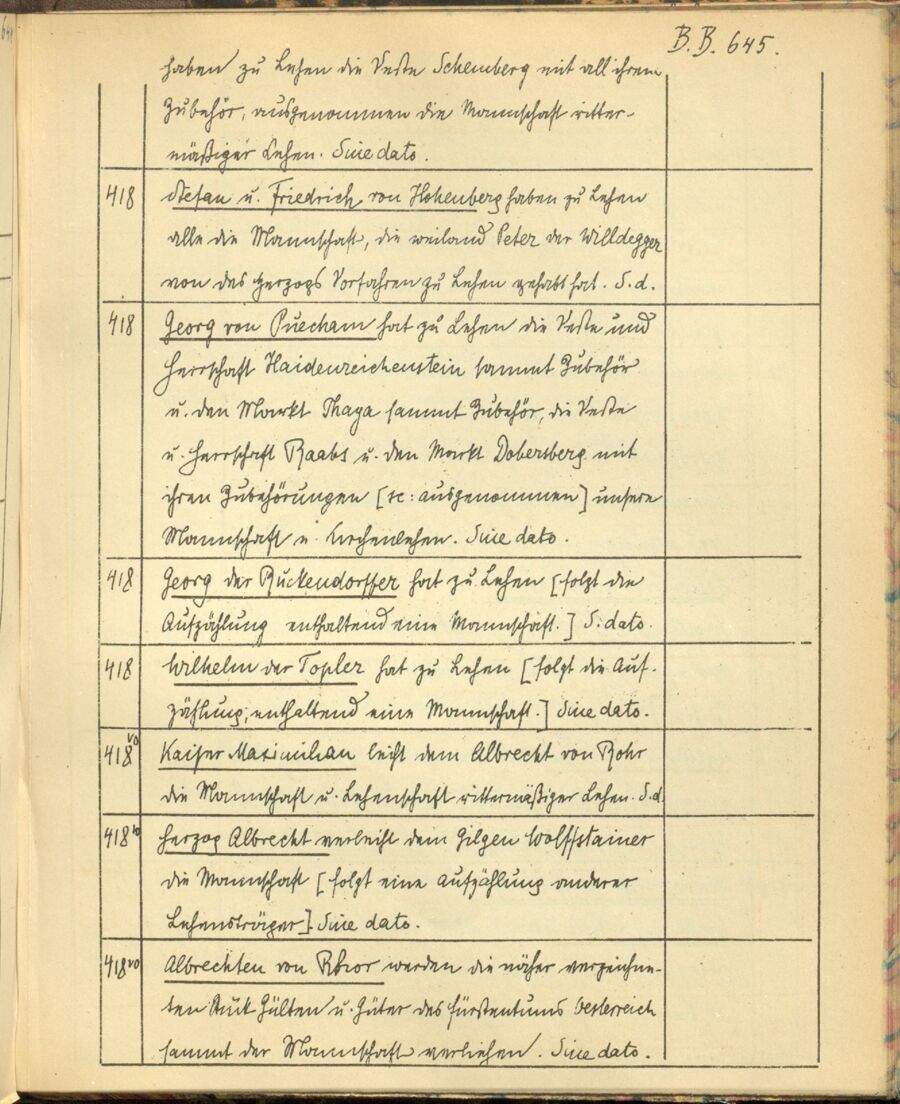 B.B. 645.
haben zu Lehen die Veste Schemberg mit all ihrem
Zubehör, ausgenommen die Mannschaft ritter-
mäßiger Lehen. Sine dato.
418 Stefan u. Friedrich von Hohenberg haben zu Lehen
alle die Mannschaft, die weiland Peter der Willdegger
von des Herzogs Vorfahren zu Lehen gehabt hat. S. d.
418 Georg von Puecham hat zu Lehen die Veste und
Herrschaft Haidenreichenstein sammt Zubehör
u. den Markt Thaya sammt Zubehör, die Veste
u. Herrschaft Raabs u. den Markt Dobersberg mit
ihren Zubehörungen [sc: ausgenommen] unsere
Mannschaft u. Kirchenlehen. Sine dato.
418 Georg der Ruckendorffer hat zu Lehen [folgt die
Aufzählung enthaltend eine Mannschaft.] S. dato.
418 Wilhelm der Topler hat zu Lehen [folgt die Auf-
zählung, enthaltend eine Mannschaft.] Sine dato.
418 vo Kaiser Maximilian leiht dem Albrecht von Rohr
die Mannschaft u. Lehenschaft rittermäßiger Lehen. S. d.
418 vo Herzog Albrecht verleiht dem Gilgen Wolffstainer
die Mannschaft [folgt eine Aufzählung anderer
Lehensträger]. Sine dato.
418 vo Albrechten von werden die näher verzeichne-
ten Stuk Gülten u. Güter des Fürstentums Oesterreich
sammt der Mannschaft verliehen. Sine dato.